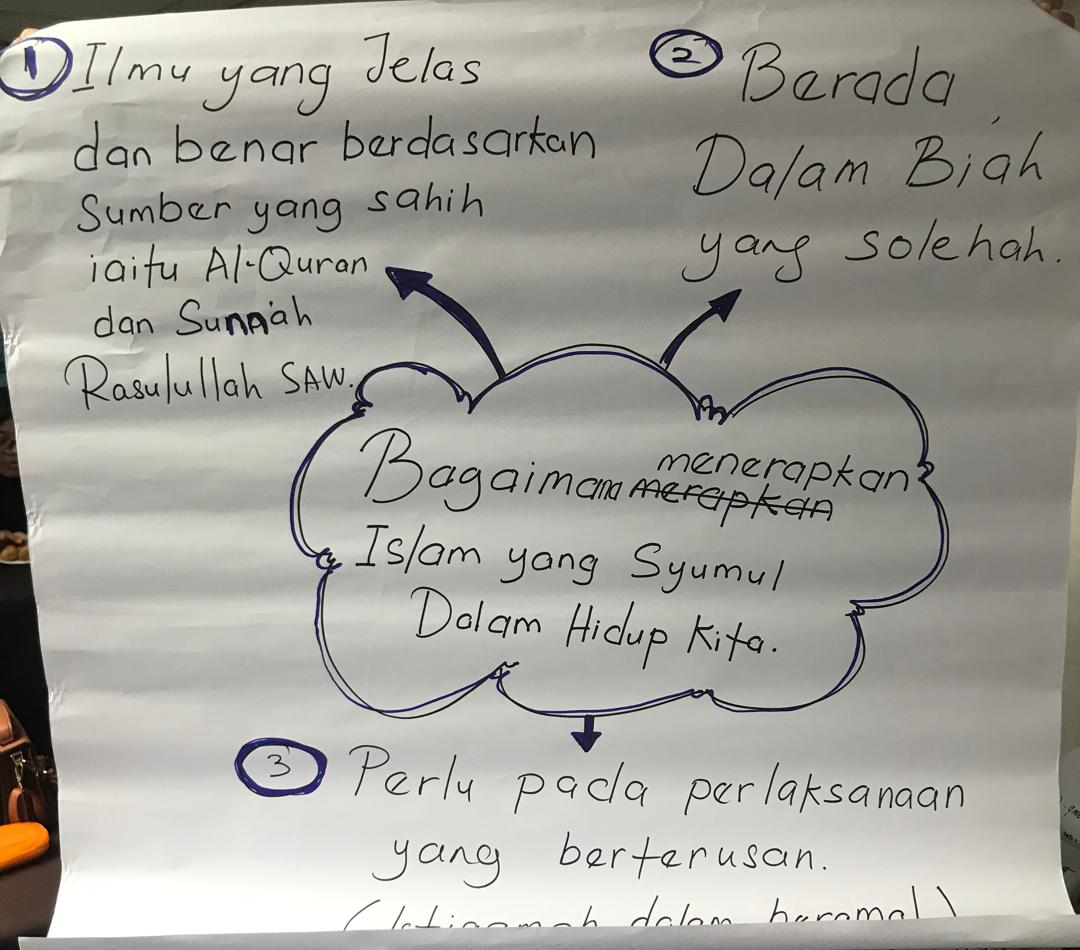 1 Ilmu yang Jelas
dan benar berdasarkan
Sumber yang sahih
iaitu Al-Quran
dan Sunnah
Rasulullah SAW.
2 Berada
Dalam Biah
yang solehah.
Bagaimana menerapkan
merapkan
Islam yang Syumul
Dalam Hidup Kita.
3 Perlu pada perlaksanaan
yang berterusan.
(Istiqamah dalam beramal)